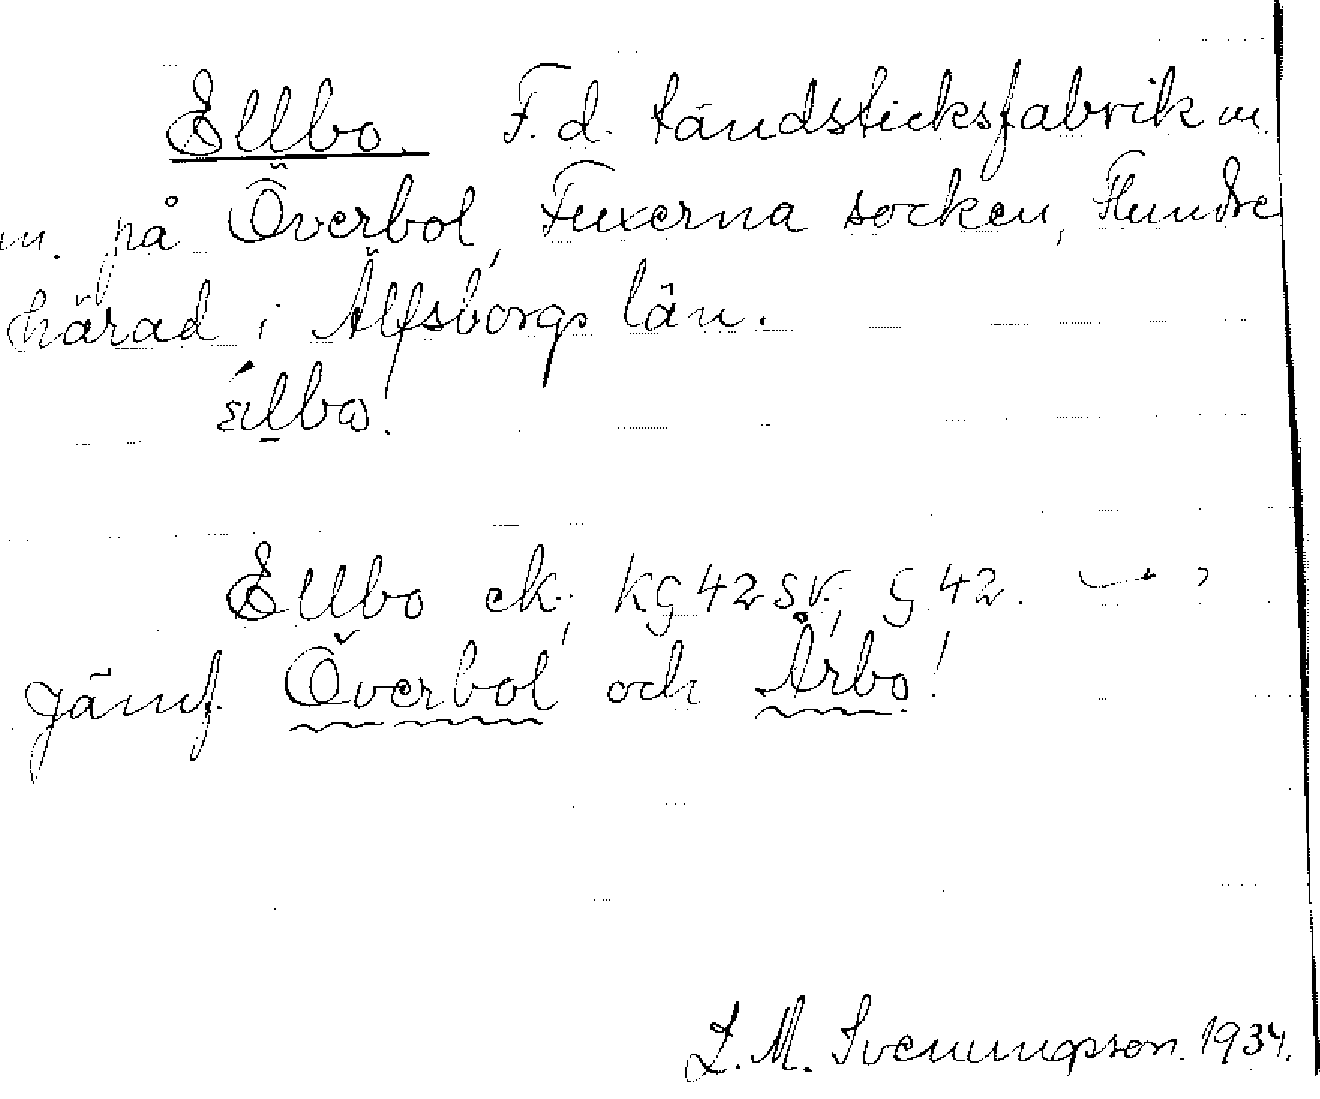 Ellbo. F. d. tändsticksfabrik m.
m. på Överbol, Fuxerna socken, Flundre
härad i Älfsborgs län.
Ellbo ek. kg 42 sv., g 42.
Jämf. Överbol och Årbo!
L. M. Svenungsson. 1934.